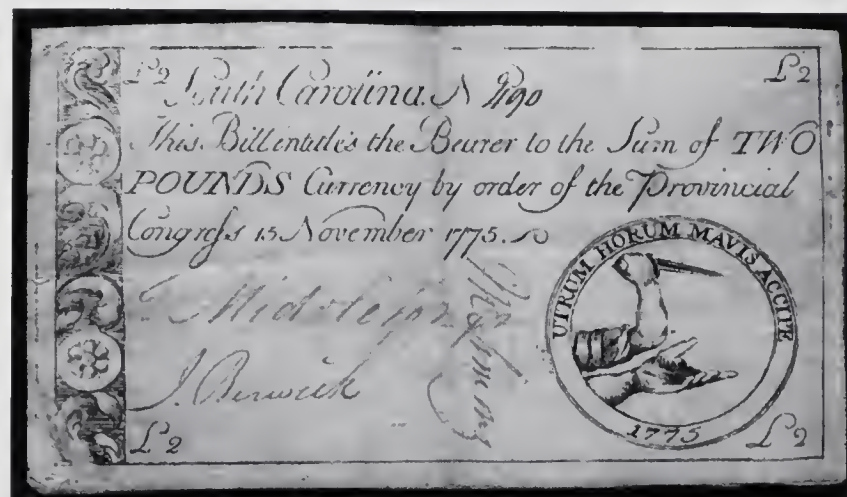 £2 £2
South Carolina. N
This Bill entitles the Bearer to the Sum of TWO
POUNDS Currency by order of the Provincial
Congreſs 15 November 1775.
UTRUM HORUM MAVIS ACCIPE
J. Berwick
1775
£2 £2